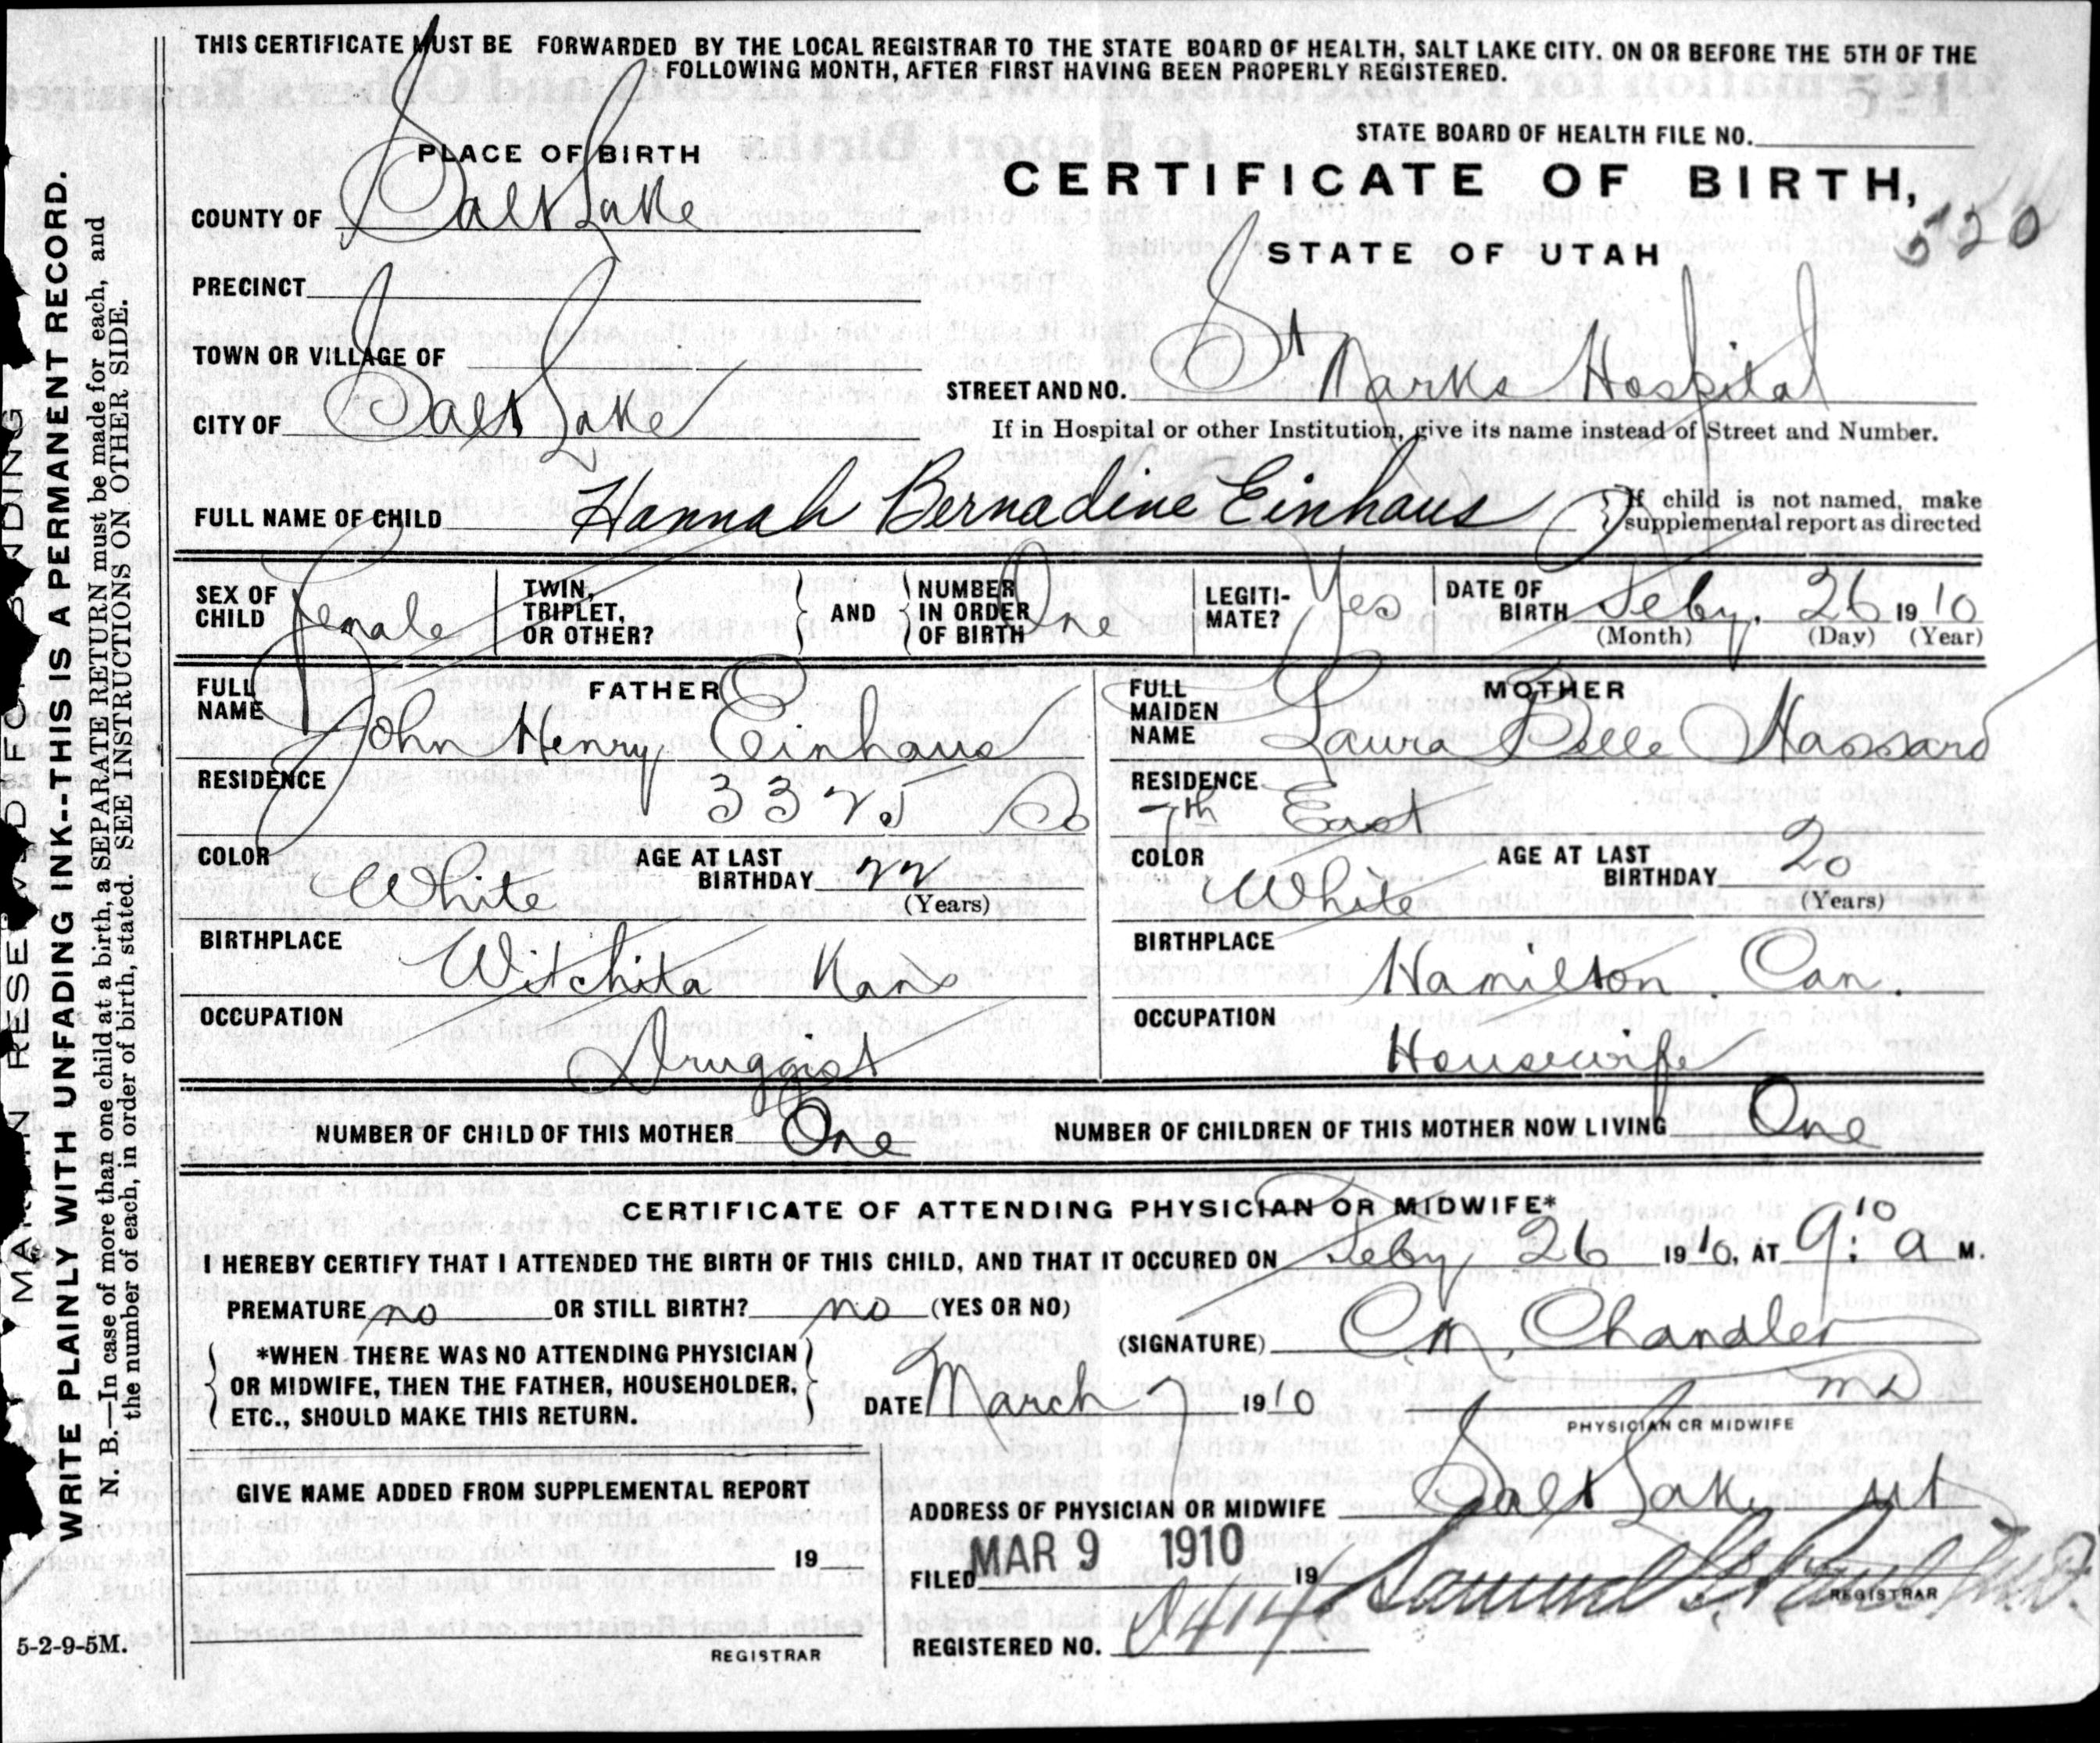 THIS CERTIFICATE MUST BE FORWARDED BY THE LOCAL REGISTRAR TO THE STATE BOARD OF HEALTH, SALT LAKE CITY. ON OR BEFORE THE 5TH OF THE
FOLLOWING MONTH, AFTER FIRST HAVING BEEN PROPERLY REGISTERED.
STATE BOARD OF HEALTH FILE NO.
PLACE OF BIRTH
CERTIFICATE OF BIRTH,
520
COUNTY OF Salt Lake
STATE OF UTAH
PRECINCT
TOWN OR VILLAGE OF
STREET AND NO. St Marks Hospital
CITY OF Salt Lake
If in Hospital or other Institution, give its name instead of Street and Number.
FULL NAME OF CHILD Hannah Bernadine Einhaus
If child is not named, make
supplemental report as directed
SEX OF CHILD Female
TWIN, TRIPLET, OR OTHER?
AND NUMBER IN ORDER OF BIRTH One
LEGITI-MATE? Yes
DATE OF BIRTH Feby. 26 1910
(Month) (Day) (Year)
FATHER
FULL NAME John Henry Einhaus
MOTHER
FULL MAIDEN NAME Laura Belle Hassard
RESIDENCE 3325 So
RESIDENCE 7th East
COLOR White
AGE AT LAST BIRTHDAY 22
(Years)
COLOR White
AGE AT LAST BIRTHDAY 20
(Years)
BIRTHPLACE Witchita Kans
BIRTHPLACE Hamilton. Can.
OCCUPATION Druggist
OCCUPATION Housewife
NUMBER OF CHILD OF THIS MOTHER One
NUMBER OF CHILDREN OF THIS MOTHER NOW LIVING One
CERTIFICATE OF ATTENDING PHYSICIAN OR MIDWIFE*
I HEREBY CERTIFY THAT I ATTENDED THE BIRTH OF THIS CHILD, AND THAT IT OCCURED ON Feby 26 1910, AT 9:10 a M.
PREMATURE no OR STILL BIRTH? no (YES OR NO)
(SIGNATURE) C.M. Chandler
MD
PHYSICIAN OR MIDWIFE
*WHEN THERE WAS NO ATTENDING PHYSICIAN
OR MIDWIFE, THEN THE FATHER, HOUSEHOLDER,
ETC., SHOULD MAKE THIS RETURN.
DATE March 7 1910
GIVE NAME ADDED FROM SUPPLEMENTAL REPORT
19
REGISTRAR
ADDRESS OF PHYSICIAN OR MIDWIFE Salt Lake, Ut
FILED MAR 9 1910 19
Samuel G. Paul M.D.
REGISTRAR
REGISTERED NO. 0414
MARGIN RESERVED FOR BINDING
WRITE PLAINLY WITH UNFADING INK--THIS IS A PERMANENT RECORD.
N. B.—In case of more than one child at a birth, a SEPARATE RETURN must be made for each, and
the number of each, in order of birth, stated. SEE INSTRUCTIONS ON OTHER SIDE.
5-2-9-5M.